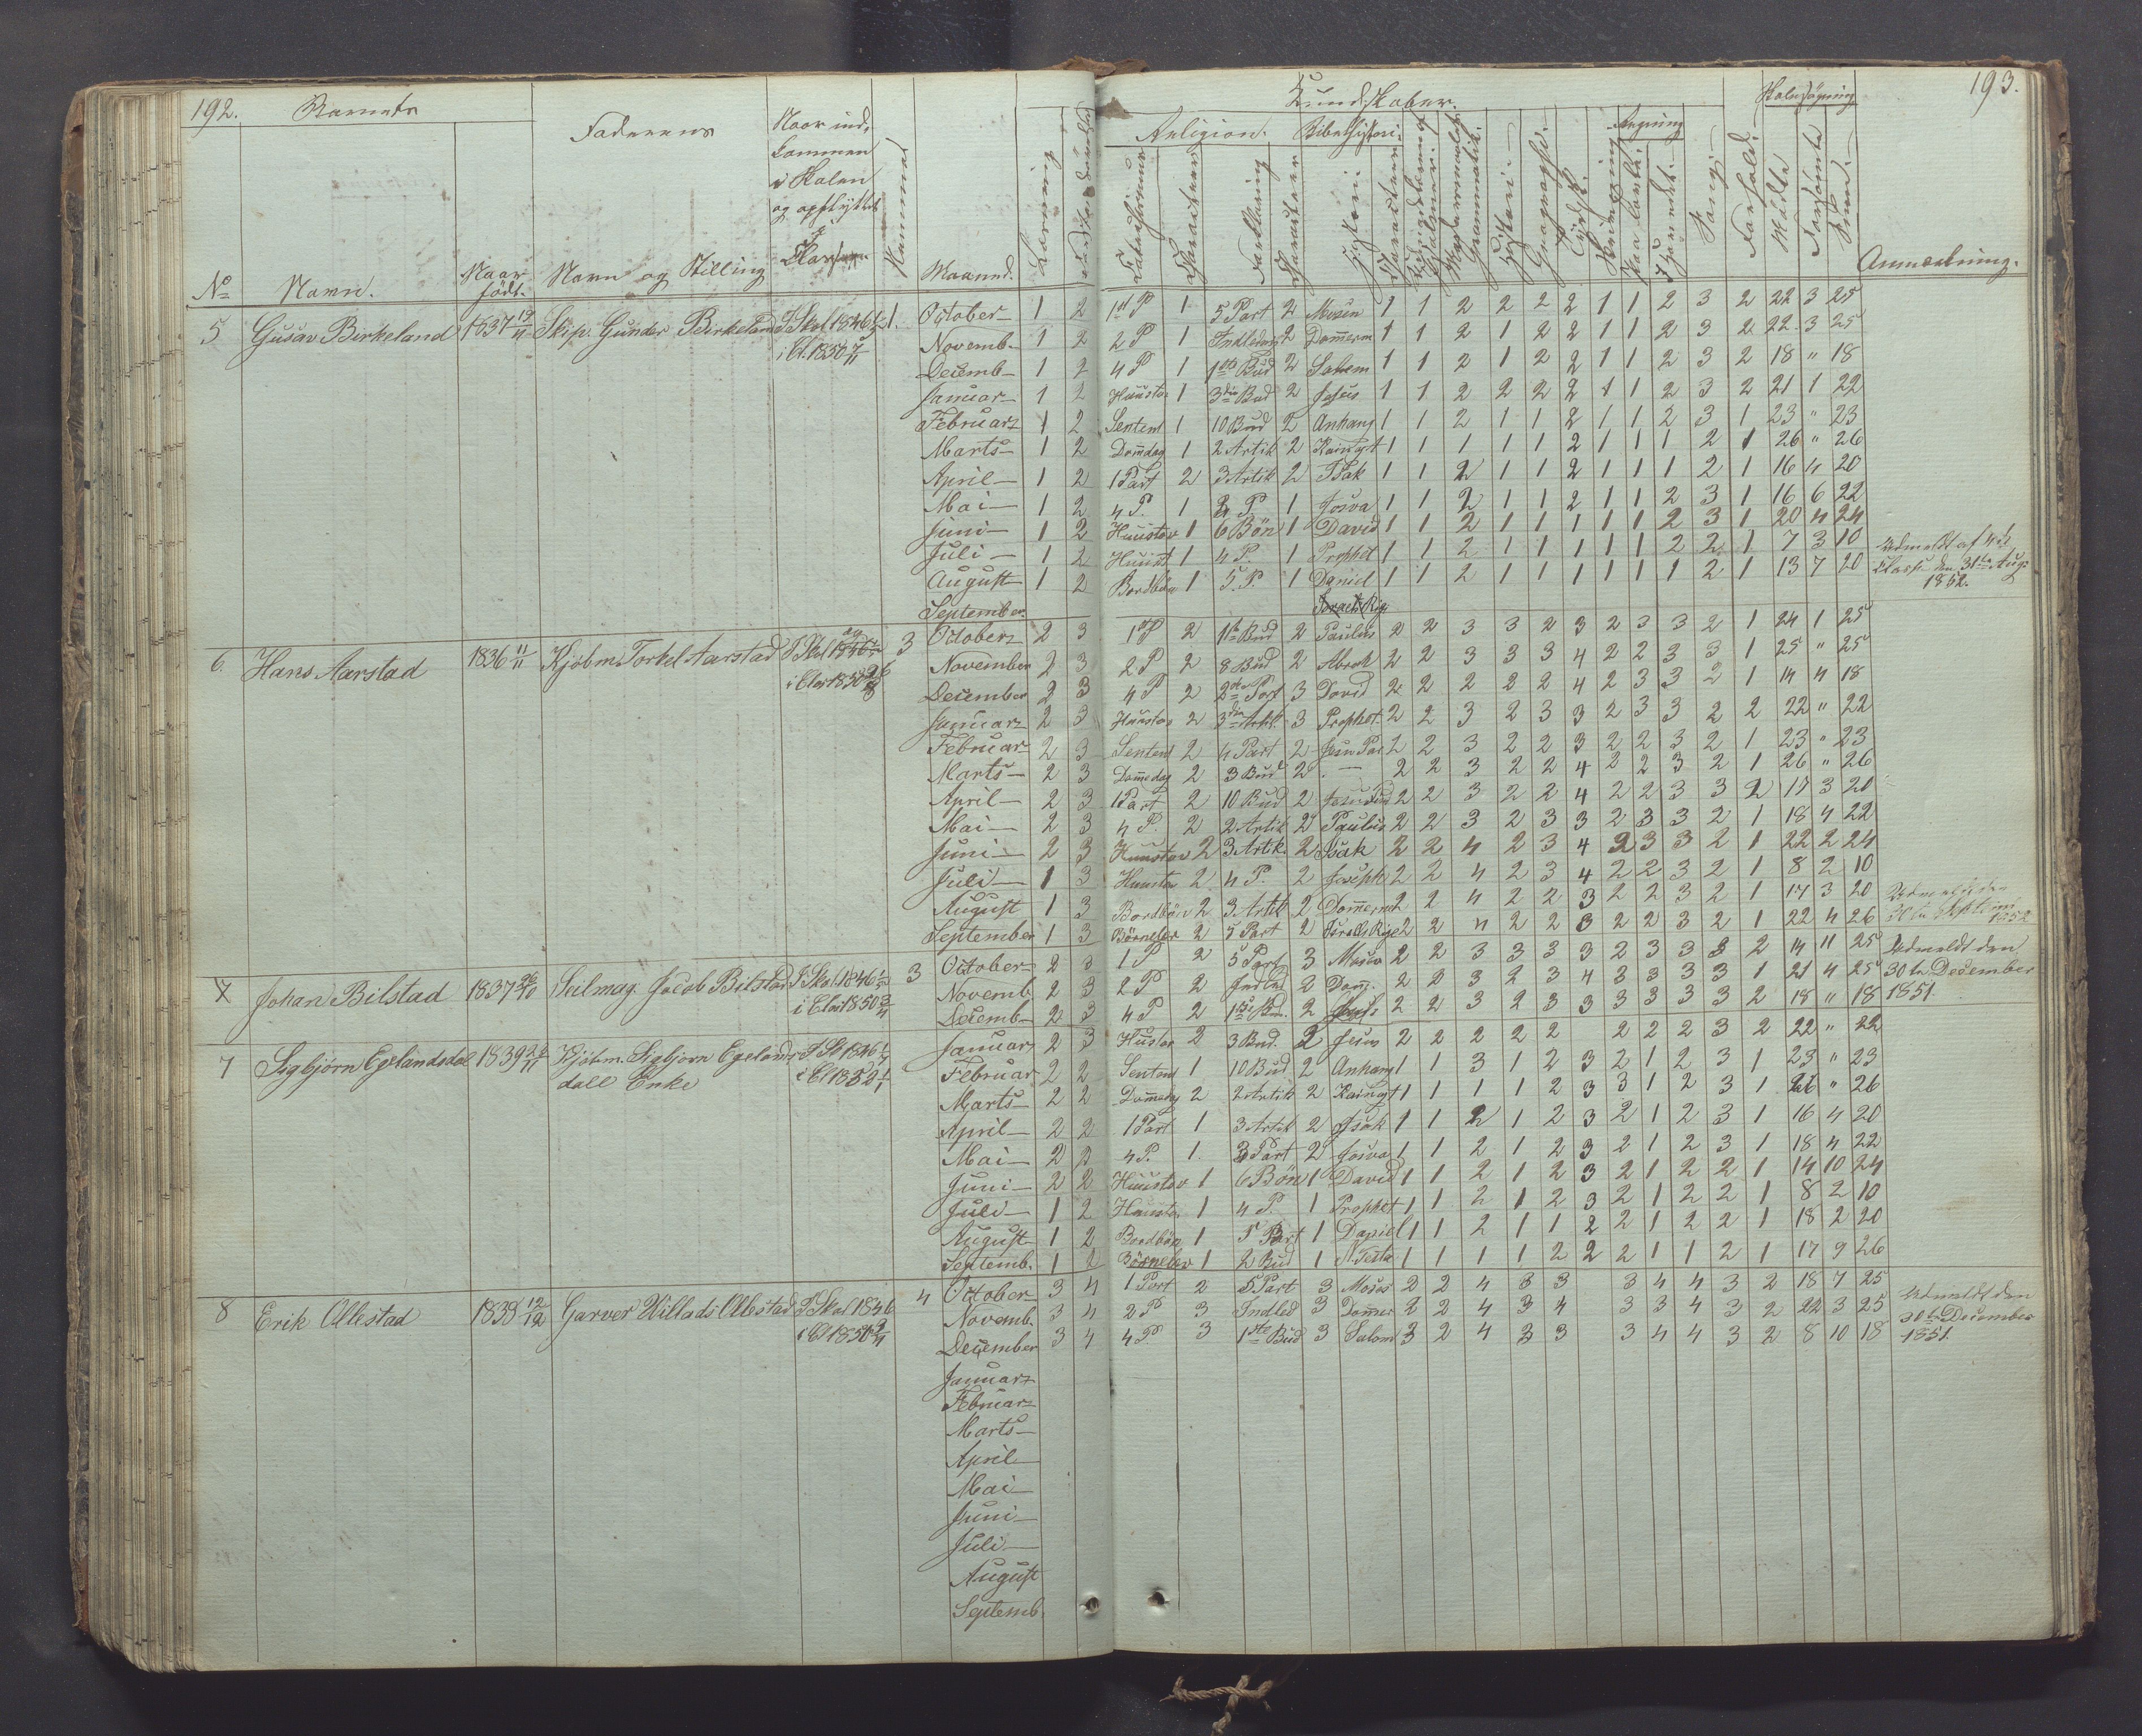 192.
Barnets
Faderens
Naar ind-
kommen
i Skolen
og opflyttet
Nummer
Maaned.
Læsning
No
Navn.
Naar
født.
Navn og Stilling
5 Gusav Birkeland 1837 19/11 Skip. Gunder Birkeland I Skol 1846 1.
i Cl. 1850
October 1 2
Novemb. 1 2
Decemb 1 2
Januar 1 2
Februar 1 2
Marts 1 2
April 1 2
Mai 1 2
Juni 1 2
Juli 1 2
August 1 2
September
6. Hans Aarstad 1836 11/11 Kjøbm. Torkel Aarstad I Skol 3
October 2 3
November 2 3
December 2 3
Januar 2 3
Februar 2 3
Marts 2 3
April 2 3
Mai 2 3
Juni 2 3
Juli 1 3
August 1 3
September 1 3
7 Johan Bilstad 1837 26/10 Seilmag. Jacob Bilstad I Skol. 1846 3
October 2 3
Novemb. 2 3
Decemb 2 3
7 Sigbjørn Egelandsdal 1839 Kjøbm. Sigbjørn Egelands-
dall Enke
Januar 2 3
Februar 2 2
Marts 2 2
April 2 2
Mai 2 2
Juni 2 2
Juli 1 2
August 1 2
Septemb. 1 2
8 Erik Ollestad 1838 12/12 Garver Willads Ollestad I Skol 1846 4
October 3 4
Novemb. 3 4
December 3 4
Januar
Februar
Marts
April
Mai
Juni
Juli
August
Septemb.
193.
Kundskaber.
Skolesøgning
Religion. Bibelhistori.
Regning
Forklaring
Karakteer
Historie
Geographi.
Tydsk.
Sang
Forhold
Mødte
Forsømte
Anmærkning.
1ste P 1 5 Part 2 Mosen 1 1 2 2 2 2 1 1 2 3 2 22 3 25
2 P 1 Indledng 2 Dommern 1 1 2 1 2 2 1 1 2 3 2 22 3 25
4 P 1 1ste Bud 2 Salom 1 1 2 1 2 2 1 1 2 3 2 18 " 18
Huustav 1 3die Bud 2 Jesus 1 1 2 2 2 2 1 1 2 3 2 21 1 22
Sentens 1 10 Bud 2 Anhang 1 1 2 1 1 2 1 1 2 3 1 23 " 23
Domdag 1 2 Artik 2 Kaingt 1 1 1 1 1 2 1 1 1 2 1 26 " 26
1 Part 2 3 Artik 2 Isak 1 1 2 1 1 2 1 1 1 2 1 16 4 20
4 P. 1 3 P. 1 Josva 1 1 2 1 1 2 1 1 2 3 1 16 6 22
Huustav 1 6 Bøn 1 David 1 1 2 1 1 1 1 1 2 3 1 20 4 24
Huust 1 4 P. 1 Prophet 1 1 2 1 1 1 1 1 2 2 1 7 3 10
Bordbøn 1 5. P. 1 Daniel 1 1 2 1 1 1 1 1 1 2 1 13 7 20
Udmeldt af 4de
Classe den 31te Aug.
1852.
1ste P 2 1te Bud 2 Paulus 2 2 3 3 2 3 2 3 3 2 1 24 1 25
2 P 2 8 Bud 2 Abrah 2 2 3 3 3 4 2 2 3 3 1 25 " 25
4 P 2 2den Part 3 David 2 2 2 2 2 4 2 3 3 2 1 14 4 18
Huustav 2 3die Artkl. 3 Prophet. 2 2 3 2 3 3 2 3 3 2 2 22 " 22
Sentens 2 4 Part 2 2 2 3 2 2 3 2 2 3 2 1 23 " 23
Domedag 2 3 Bud 2 . — 2 2 3 2 2 4 2 2 3 2 1 26 " 26
1 Part 2 10 Bud 2 2 2 3 2 2 4 2 2 3 3 2 17 3 20
4 P. 2 2 Artik 2 Paulus 2 2 3 2 3 3 2 3 3 2 1 18 4 22
Huustav 2 3 Artk. 2 Isak 2 2 4 2 3 4 2 3 3 2 1 22 2 24
Huustav 2 4 P. 2 Joseph 2 2 4 2 3 4 2 2 3 2 1 8 2 10
Bordbøn 2 3 Artik 2 Dommerne 2 2 4 2 2 3 2 2 3 2 1 17 3 20
Børnelær 2 5 Part 2 Isräls Rige 2 2 4 2 2 3 2 2 3 2 1 22 4 26
1 P 2 5 Part 3 Moses 2 2 3 3 3 3 2 3 3 3 2 14 11 25
2 P 2 Indled 2 Dom. 2 2 3 2 3 4 3 3 3 3 1 21 4 25
4 P 2 1ste Bu. 2 2 2 3 2 3 3 3 3 3 3 2 18 " 18
Udmeldt den
30te December
1851.
Hustav 2 3 Bud. 2 Jesus 2 2 2 2 2 2 2 2 3 2 22 " 22
Sentens 1 10 Bud 2 Anhang 1 1 3 1 2 3 2 1 2 3 1 23 " 23
Domedag 2 2 Artik 2 Kaingt 1 1 1 1 2 3 3 1 2 3 1 26 " 26
1 Part 1 3 Artik 2 Isak 1 1 2 1 2 3 2 1 2 3 1 16 4 20
4 P. 1. 3 Part 2 Josva 1 1 2 1 2 3 2 1 2 3 1 18 4 22
Huustav 1 6 Bøn 1 David 1 1 2 1 2 3 2 1 2 2 1 14 10 24
Huustav 1 4 P. 1 Prophet 1 1 2 1 2 3 2 1 2 2 1 8 2 10
Bordbøn 1 5 Part 1 Daniel 1 1 2 1 1 2 2 1 2 2 1 18 2 20
Børnelær 1 2 Bud 1 N. Testa 1 1 1 1 2 2 2 1 1 2 1 17 9 26
1 Part 2 5 Part 3 Moses 2 2 4 3 3 3 4 4 3 2 18 7 25
2 P 3 Indled 3 Dommer 2 2 4 3 4 3 3 4 3 2 22 3 25
4 P. 3 1ste Bud 3 Salom 3 2 4 3 3 3 4 4 3 2 8 10 18
Udmeldt den
30te December
1851.